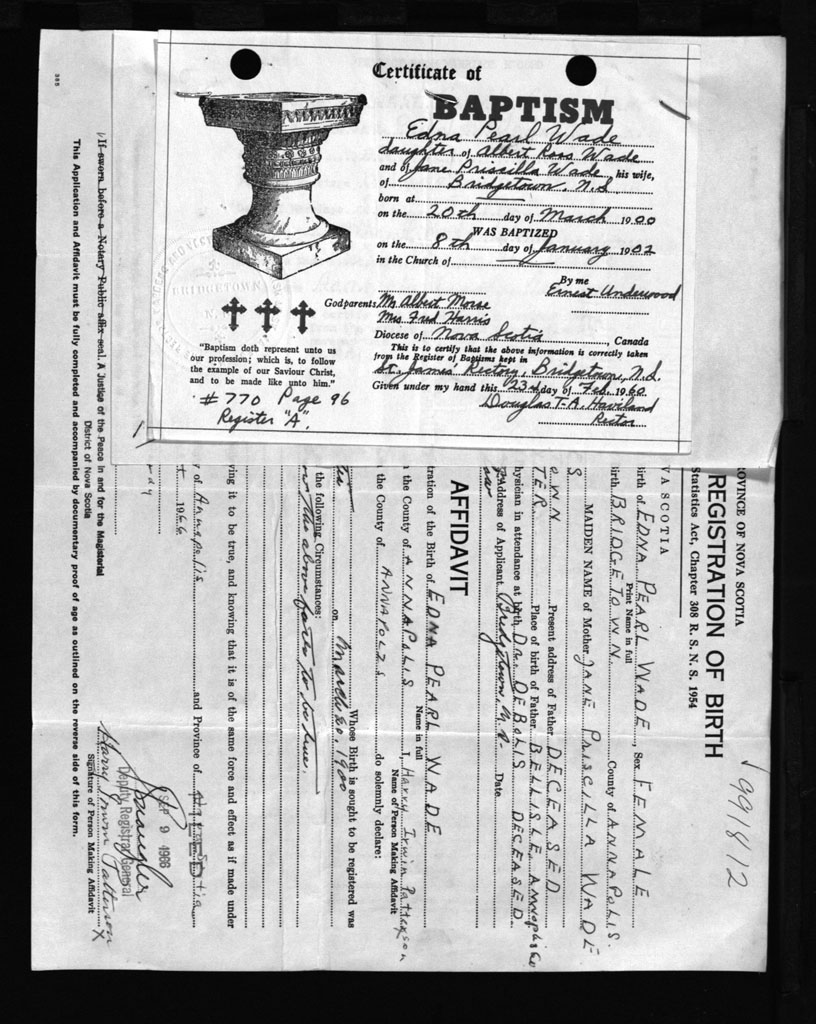 Certificate of
BAPTISM
Edna Pearl Wade
daughter of Albert Ross Wade
and of Jane Priscilla Wade his wife,
of Bridgetown, N.S.
born at
on the 20th day of March 1900
WAS BAPTIZED
on the 8th day of January 1902
in the Church of
By me
Ernest Underwood
Godparents Mr Albert Morse
Mrs Fred Harris
Diocese of Nova Scotia, Canada
This is to certify that the above information is correctly taken
from the Register of Baptisms kept in
St. James' Rectory, Bridgetown, N.S.
Given under my hand this 23rd day of Feb. 1960
Douglas T. A. Haviland
Rector
BRIDGETOWN
"Baptism doth represent unto us
our profession; which is, to follow
the example of our Saviour Christ,
and to be made like unto him."
#770 Page 96
Register "A".
199/812
ROVINCE OF NOVA SCOTIA
REGISTRATION OF BIRTH
Statistics Act, Chapter 308 R. S. N. S. 1954
VA SCOTIA
irth of EDNA PEARL WADE, Sex FEMALE
Print Name in full
irth BRIDGETOWN. County of ANNAPOLIS.
S MAIDEN NAME of Mother JANE PRISCILLA WADE
OWN Present address of Father DECEASED
TER. Place of birth of Father BELLISLE, ANNAPOLIS Co
hysician in attendance at birth DR. DEBOLIS DECEASED.
Address of Applicant Bridgetown, N.S. Date
AFFIDAVIT
tration of the Birth of EDNA PEARL WADE
Name in full
n the County of ANNAPOLIS I, Harry Irwin Patterson
Name of Person Making Affidavit
the County of ANNAPOLIS do solemnly declare:
Whose Birth is sought to be registered was
on March 20, 1900
the following Circumstances:
the above facts to be true.
ving it to be true, and knowing that it is of the same force and effect as if made under
y of Annapolis and Province of
t. 1966
SEP 9 1966
Deputy Registrar General
Harry Irwin Patterson X
Signature of Person Making Affidavit
If sworn before a Notary Public affix seal. A Justice of the Peace in and for the Magisterial
District of Nova Scotia
This Application and Affidavit must be fully completed and accompanied by documentary proof of age as outlined on the reverse side of this form.
385